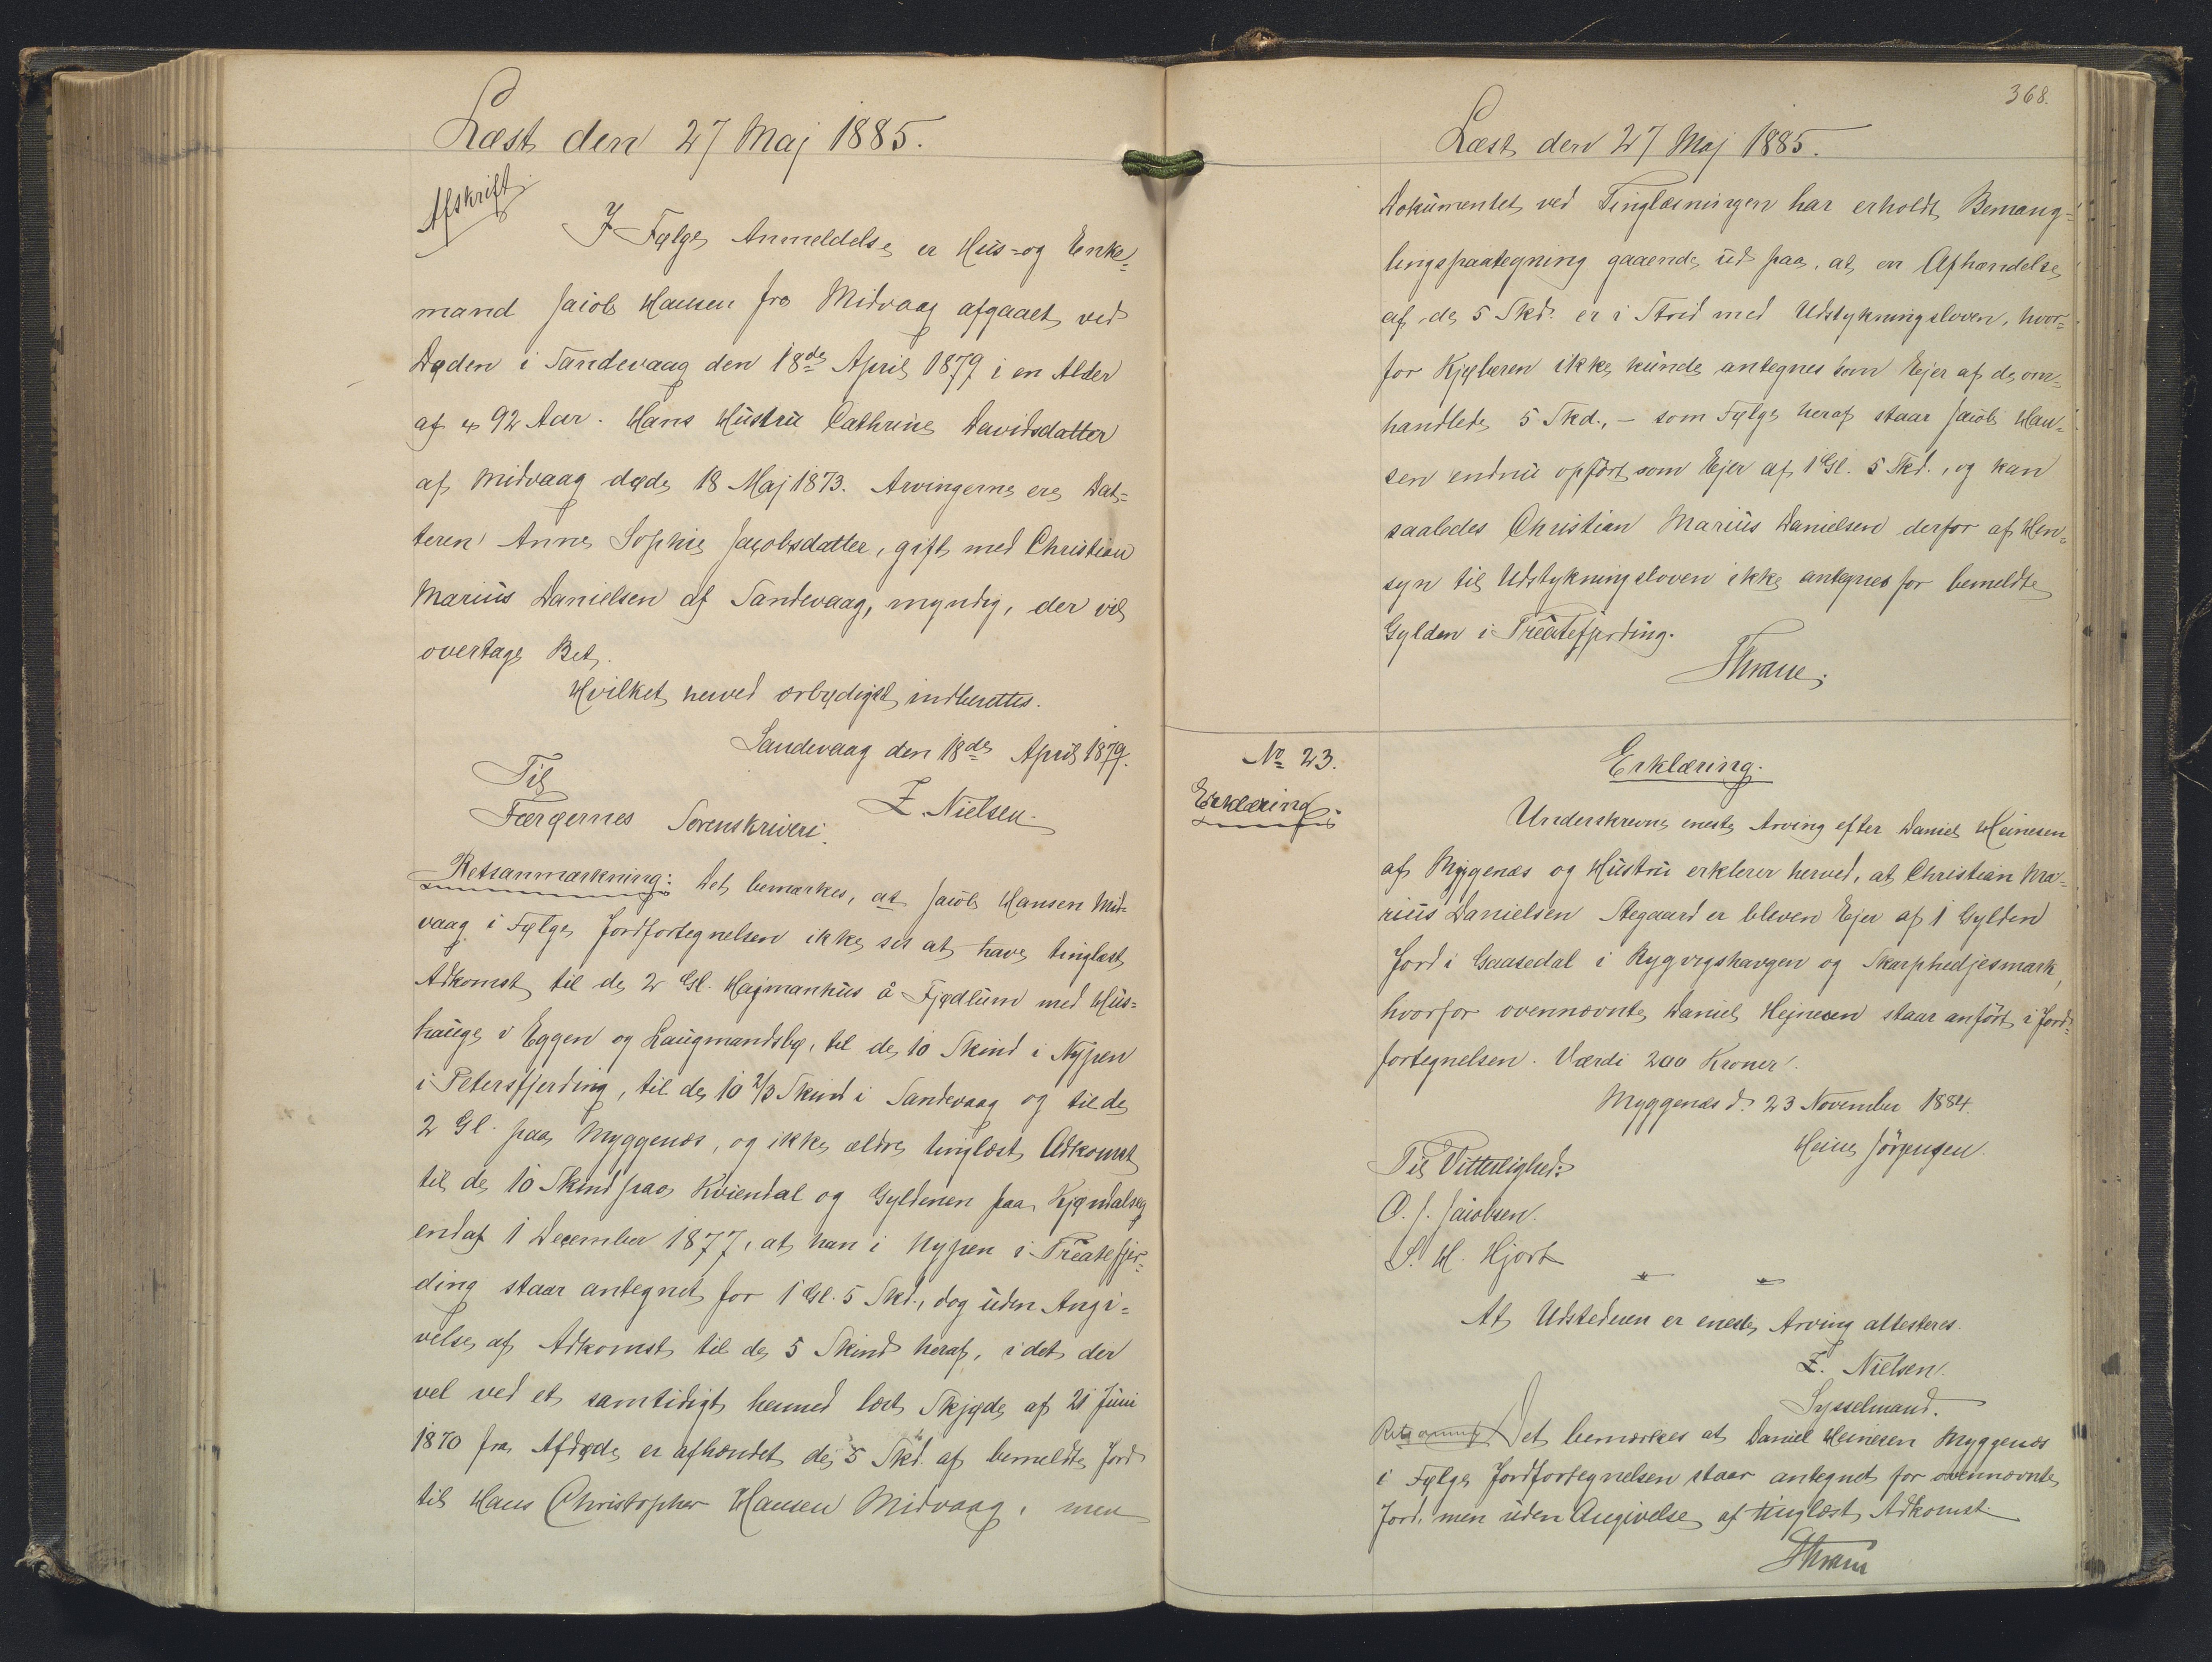 Læst den 27 Maj 1885.
Afskrift.
I Følge Anmeldelse er Hus- og Enke=
mand Jacob Hansen fra Midvaag afgaaet ved
Døden i Sandevaag den 18de April 1879 i en Alder
af 92 Aar. Hans Hustru Cathrine Davidsdatter
af Midvaag døde 18 Maj 1873. Arvingerne ere Dat=
teren Anne Sophie Jacobsdatter, gift med Christian
Marius Danielsen af Sandevaag, myndig, der vil
overtage Bet.
Hvilket herved ærbødigst indberettes.
Sandevaag den 18de April 1879.
Til
Færøernes Sorenskriveri.
Z. Nielsen.
Retsanmærkning: Det bemærkes, at Jacob Hansen Mid=
vaag i Følge Jordfortegnelsen ikke ses at have tinglæst
Adkomst til de 2 Gl. Høgmanhus å Fjødlum med Hus=
hauge v Eggen og Laugmandsbø, til de 10 Skind i Nypen
i Petersfjerding, til de 10 2/3 Skind i Sandevaag og til de
2 Gl. paa Myggenæs, og ikke ældre tinglæst Adkomst
til de 10 Skind paa Kviendal og Gyldenen paa
end af 1 December 1877, at han i Nypen i Treatefjer=
ding staar antegnet for 1 Gl. 5 Skd., dog uden Angi=
velse af Adkomst til de 5 Skind heraf, idet der
vel ved et samtidigt hermed læst Skjøde af 21 Juni
1870 fra Afdøde er afhændet de 5 Skd. af bemeldte Jord
til Hans Christopher Hansen Midvaag, men
368.
Læst den 27 Maj 1885.
Dokumentet ved Tinglæsningen har erholdt Bemang=
lingspaategning gaaende ud paa, at en Afhændelse
af de 5 Skd. er i Strid med Udstykningsloven, hvor=
for Kjøberen ikke kunde antegnes som Ejer af de om=
handlede 5 Skd., – som Følge heraf staar Jacob Han=
sen endnu opført som Ejer af 1 Gl. 5 Skd., og kan
saaledes Christian Marius Danielsen derfor af Hen=
syn til Udstykningsloven ikke antegnes for bemeldte
Gylden i Treatefjerding.
Thrane.
No 23.
Erklæring.
Erklæring.
Underskrevne eneste Arving efter Daniel Heinesen
af Myggenæs og Hustru erklerer herved, at Christian Ma=
rius Danielsen Stegaard er bleven Ejer af 1 Gylden
Jord i Gaasedal i Rygvigshavgen og Skarphedjesmark,
hvorfor ovennævnte Daniel Hejnesen staar anført i Jord=
fortegnelsen. Værdi 200 Kroner.
Myggenæs d. 23 November 1884.
Heine Jörgensen.
Til Vitterlighed:
O. J. Jacobsen.
S. H. Hjort
At Udstederen er eneste Arving attesteres.
Z. Nielsen.
Sysselmand.
Retsanm: Det bemærkes at Daniel Heinesen Myggenæs
i Følge Jordfortegnelsen staar antegnet for ovennævnte
Jord, men uden Angivelse af tinglæst Adkomst.
Thrane